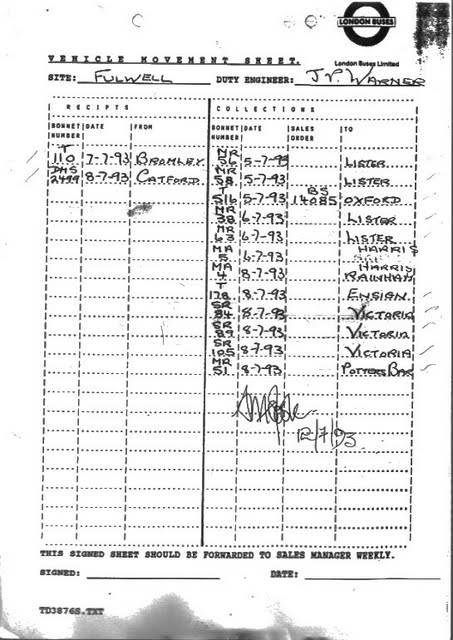 LONDON BUSES
VEHICLE MOVEMENT SHEET.
London Buses Limited
SITE: FULWELL DUTY ENGINEER: J.P. WARNER
RECEIPTS COLLECTIONS
BONNET NUMBER DATE FROM BONNET NUMBER DATE SALES ORDER TO
T 110 7-7-93 BROMLEY MR 56 5-7-93 LISTER
DMS 2499 8-7-93 CATFORD MR 58 5-7-93 LISTER
T 516 5-7-93 BS 14085 OXFORD
MR 38 6-7-93 LISTER
MR 63 6-7-93 LISTER
MA 5 6-7-93 HARRIS
MA 4 8-7-93 HARRIS RAINHAM
T 178 8-7-93 ENSIGN
SR 84 8-7-93 VICTORIA
SR 89 8-7-93 VICTORIA
SR 105 8-7-93 VICTORIA
MR 51 8-7-93 POTTERS BAR
12/7/93
THIS SIGNED SHEET SHOULD BE FORWARDED TO SALES MANAGER WEEKLY.
SIGNED: DATE:
TD3876S.TXT